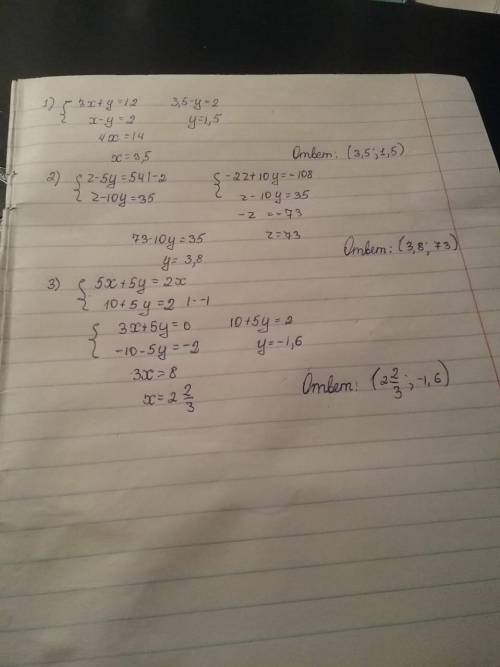 1) { 3x+y=12 3,5-y=2
x-y=2 y=1,5
4x=14
x=3,5 Ответ: (3,5; 1,5)
2) { z-5y=54 |·-2 { -2z+10y=-108
z-10y=35 z-10y=35
-z =-73
73-10y=35 z=73
y=3,8 Ответ: (3,8; 73)
3) { 5x+5y=2x
10+5y=2 |·-1
{ 3x+5y=0 10+5y=2
-10-5y=-2 y=-1,6
3x=8
x=2 2/3 Ответ: (2 2/3; -1,6)